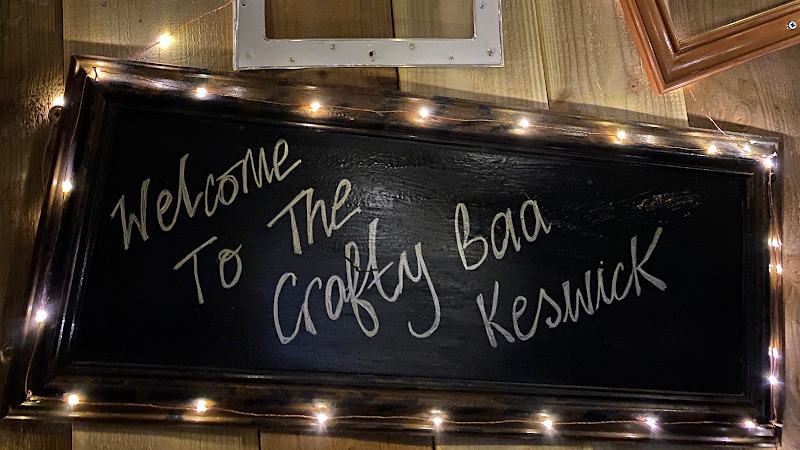 Welcome
To The
Crafty Baa
Keswick